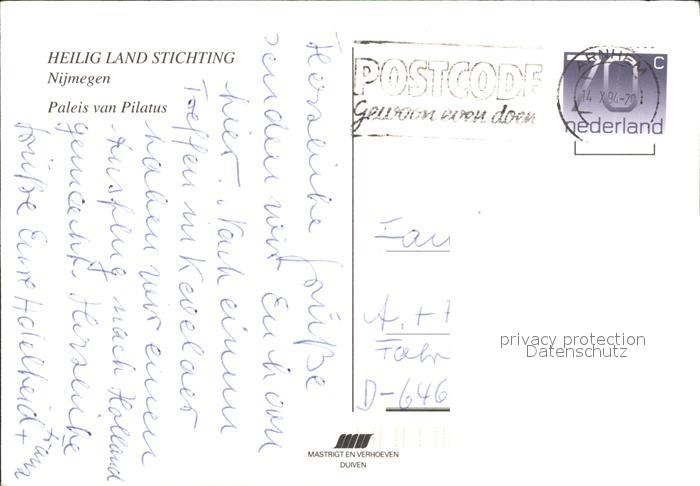 HEILIG LAND STICHTING
Nijmegen
Paleis van Pilatus
Herzliche Grüße
senden wir Euch von
hier. Nach einem
Treffen in Kevelaer
haben wir einen
Ausflug nach Holland
gemacht. Herzliche
Grüße Eure Adelheid +
Franz
POSTCODE
gewoon even doen
ARNHEM
14 X 94-20
C
70
nederland
Fam
A. +
Fahr
D-646
privacy protection
Datenschutz
MASTRIGT EN VERHOEVEN
DUIVEN